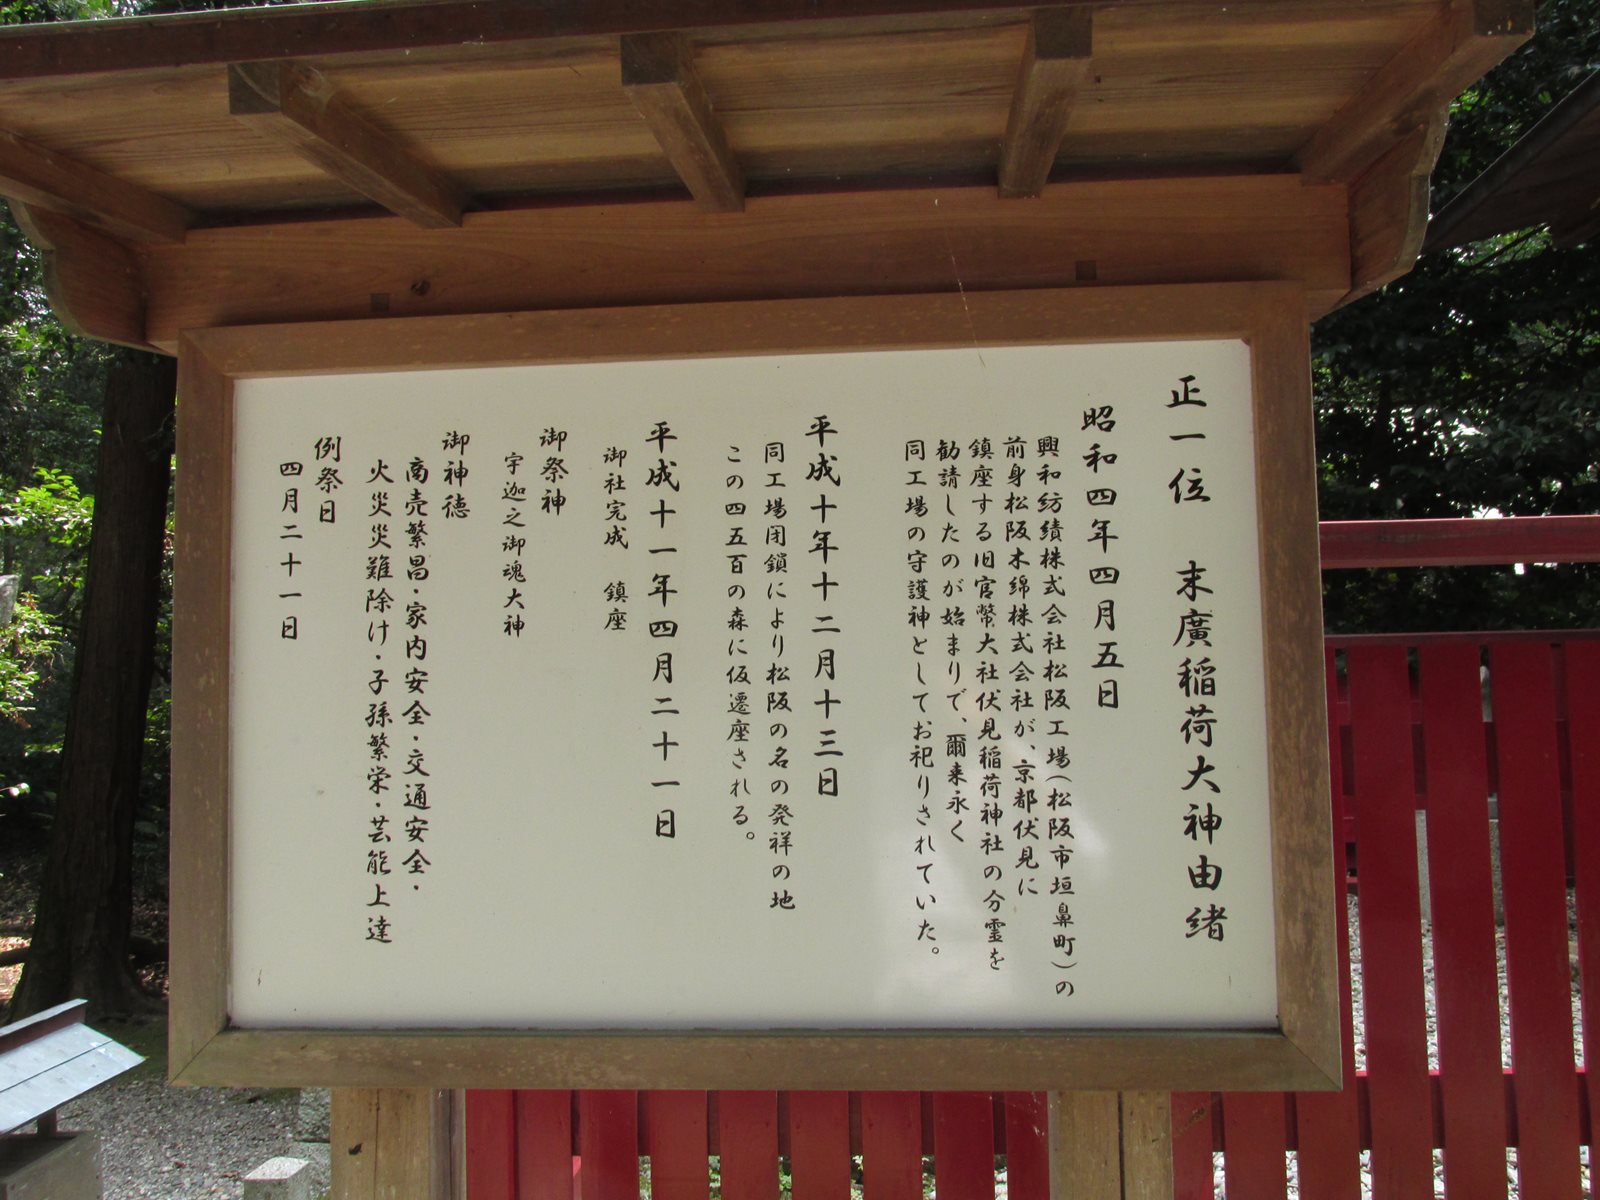 正一位　末廣稲荷大神由緒
昭和四年四月五日
興和紡績株式会社松阪工場(松阪市垣鼻町)の
前身松阪木綿株式会社が、京都伏見に
鎮座する旧官幣大社伏見稲荷神社の分霊を
勧請したのが始まりで、爾来永く
同工場の守護神としてお祀りされていた。
平成十年十二月十三日
同工場閉鎖により松阪の名の発祥の地
この四五百の森に仮遷座される。
平成十一年四月二十一日
御社完成　鎮座
御祭神
宇迦之御魂大神
御神徳
商売繁昌・家内安全・交通安全・
火災災難除け・子孫繁栄・芸能上達
例祭日
四月二十一日